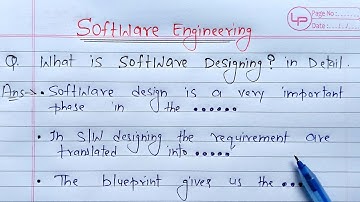 Software Engineering
LP
Page No:......
Date: ..../..../....
Q. What is Software Designing? in Detail.
Ans→ • Software design is a very important
phase in the ••••••
• In S/W designing the requirement are
translated into •••••
• The blueprint gives us the ••••